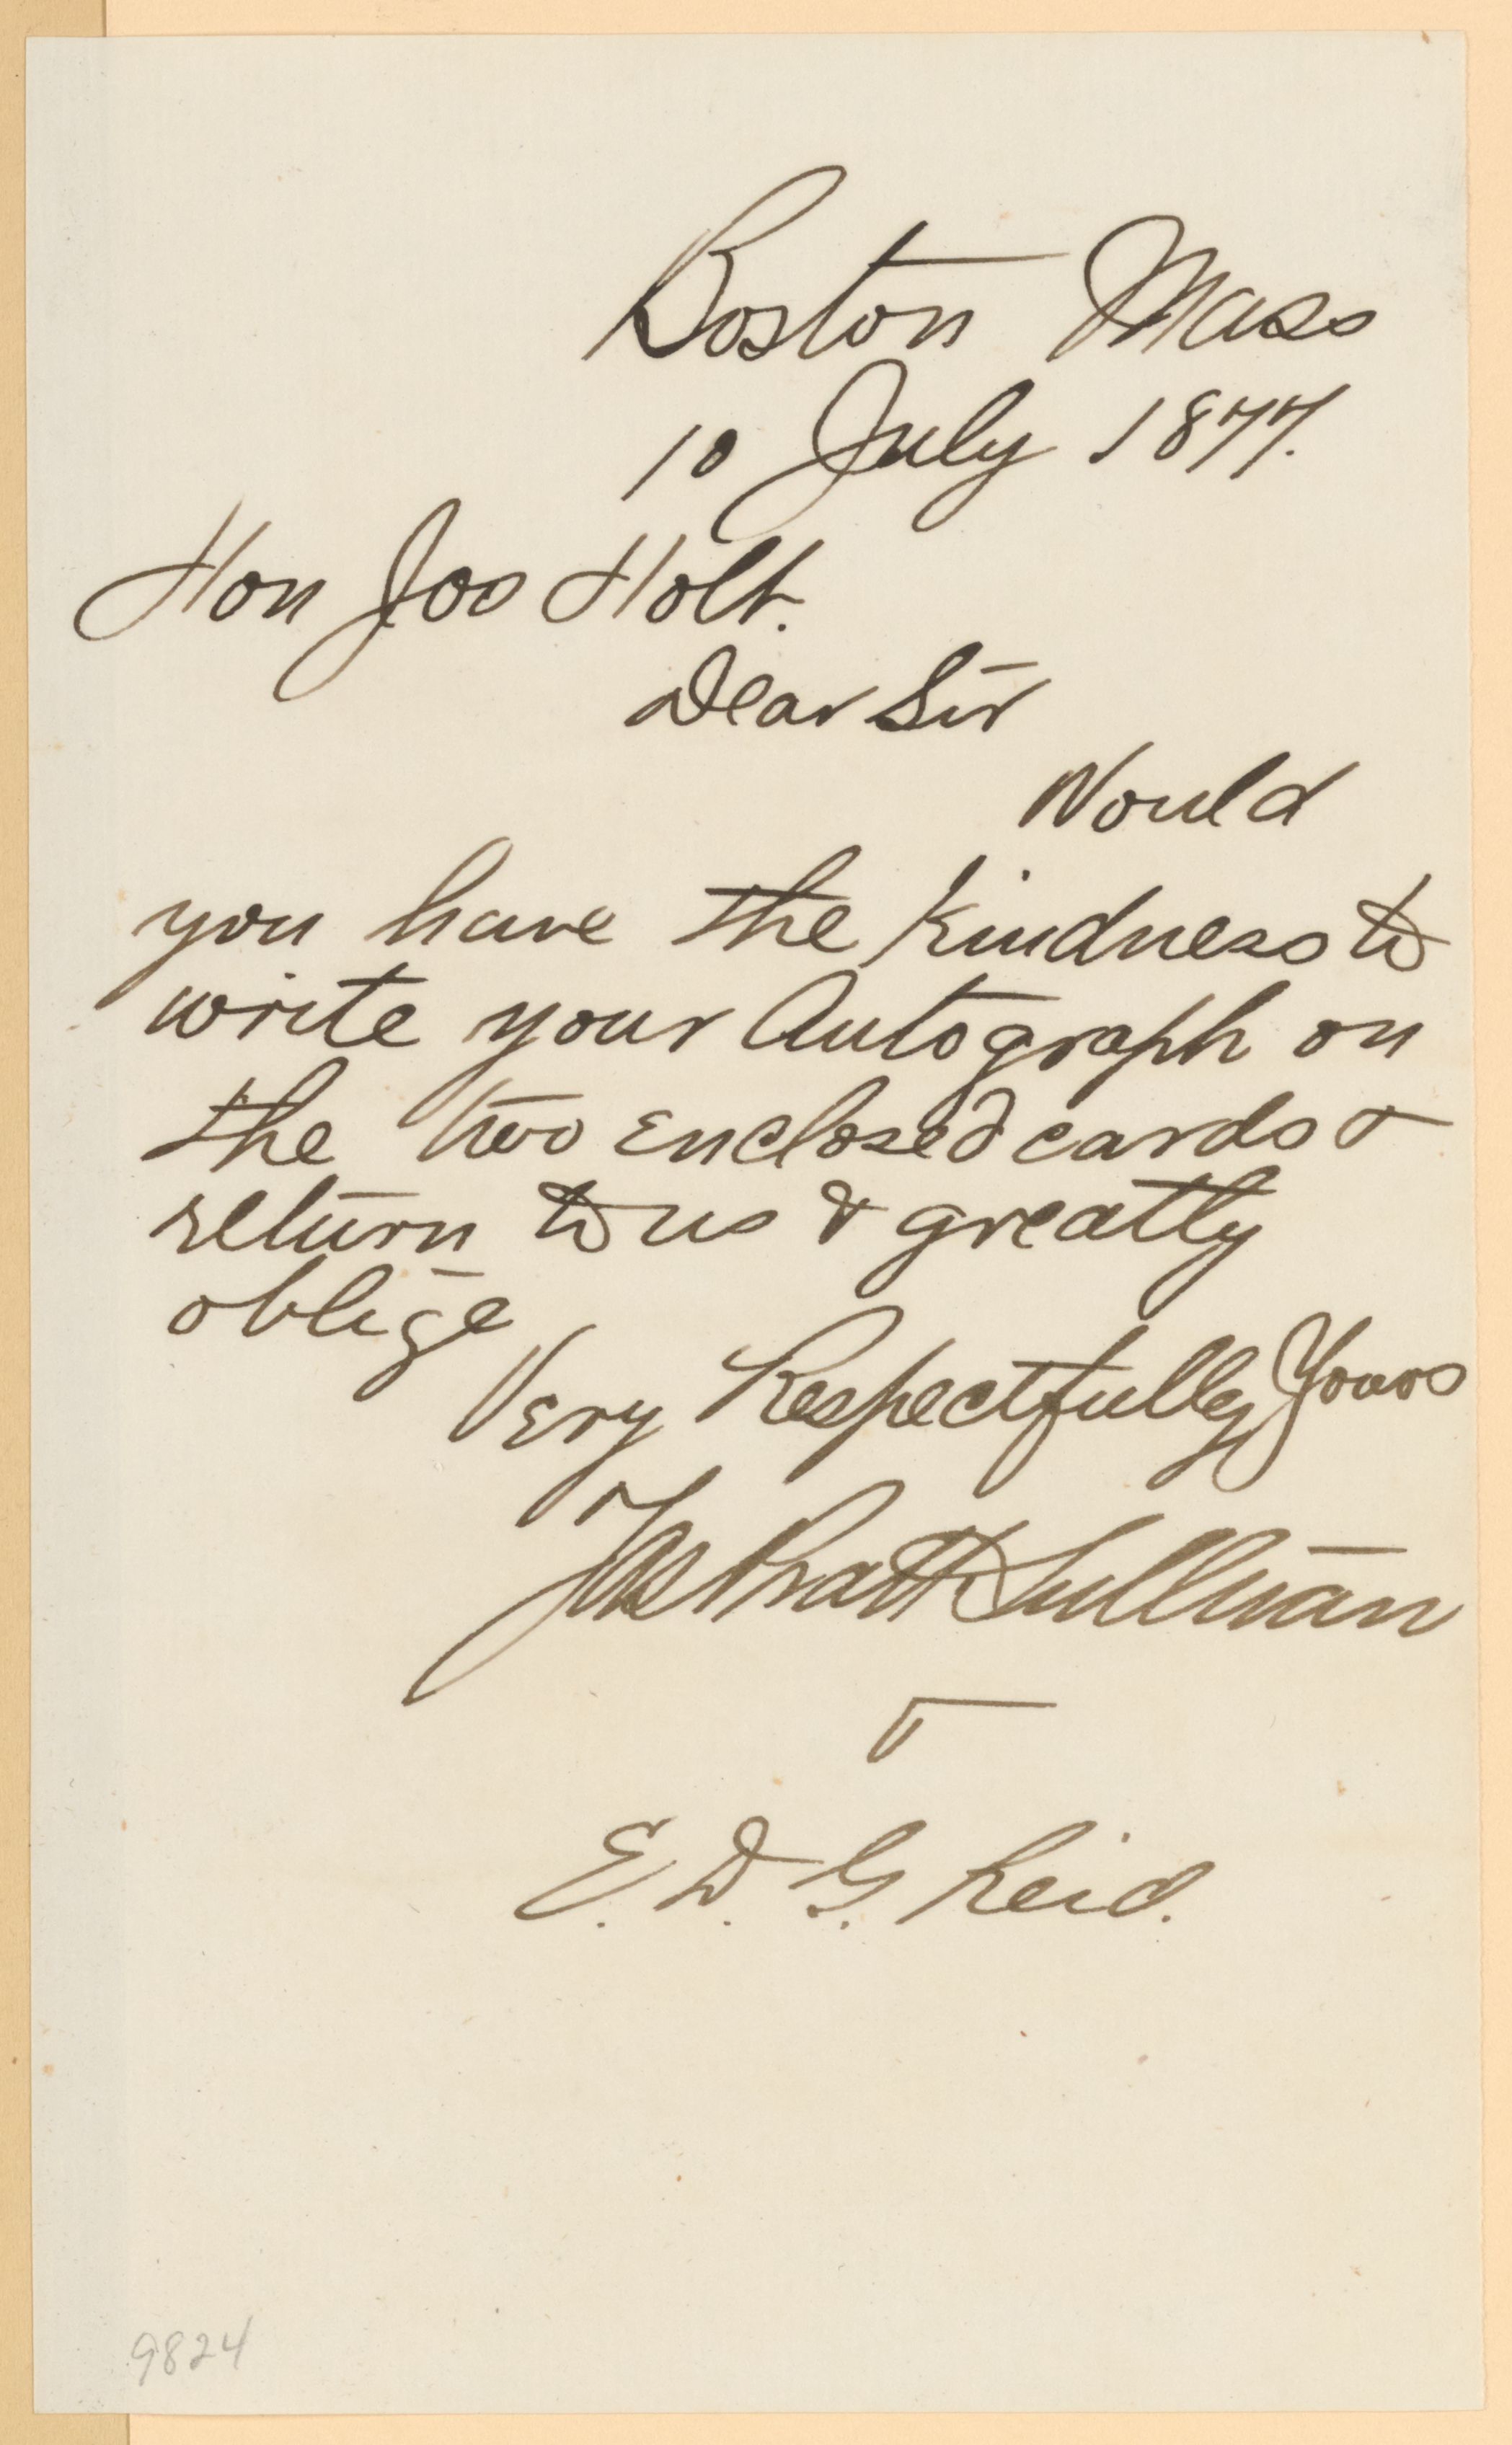 Boston Mass
10 July 1877.
Hon Jos Holt.
Dear Sir
Would
you have the kindness to
write your Autograph on
the two enclosed cards &
return to us & greatly
oblige
Very Respectfully Yours
Pratt Sullivan
&
E. D. G. Reid.
9824